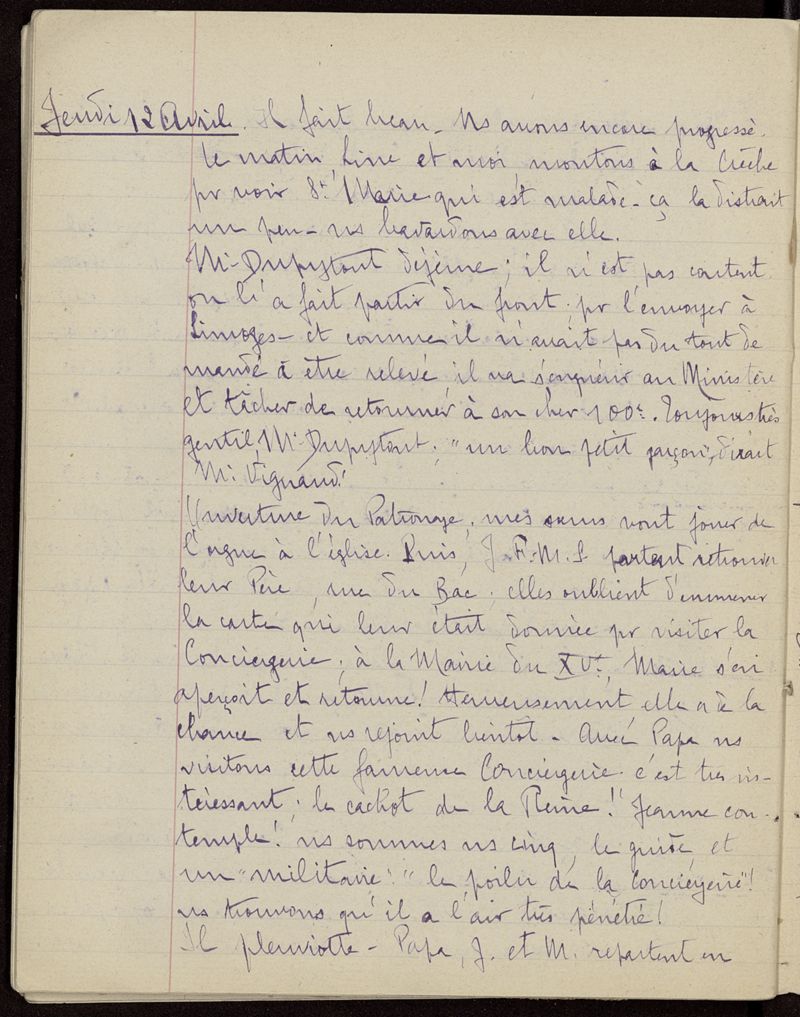 Jeudi 12 Avril. Il fait beau - Ns avons encore progressé.
Le matin, Line et moi, montons à la Crèche
pr voir Sr Marie qui est malade - ça la distrait
un peu - ns bavardons avec elle.
Mr Dupytout déjeune ; il n'est pas content
on l'a fait partir du front, pr l'envoyer à
Limoges - et comme il n'avait pas du tout de
mandé à être relevé il va s'enquérir au Ministère
et tâcher de retourner à son cher 100e. Toujours très
gentil, Mr Dupytout ; "un bon petit garçon", dirait
Mr Vignaud !
Ouverture du Patronage, mes sœurs vont jouer de
l'orgue à l'église. Puis, J. F. M. L. partent retrouver
leur Père, rue du Bac ; elles oublient d'emmener
la carte qui leur était donnée pr visiter la
Conciergerie ; à la Mairie du XVe, Marie s'en
aperçoit et retourne ! Heureusement elle a de la
chance et ns rejoint bientôt - Avec Papa ns
visitons cette fameuse Conciergerie c'est très in-
téressant ; le cachot de la Reine ! Jeanne con-
temple ! ns sommes ns cinq, le guide et
un "militaire" ! "le poilu de la Conciergerie" !
ns trouvons qu'il a l'air très pénétré !
Il pleuviotte - Papa, J. et M. repartent en